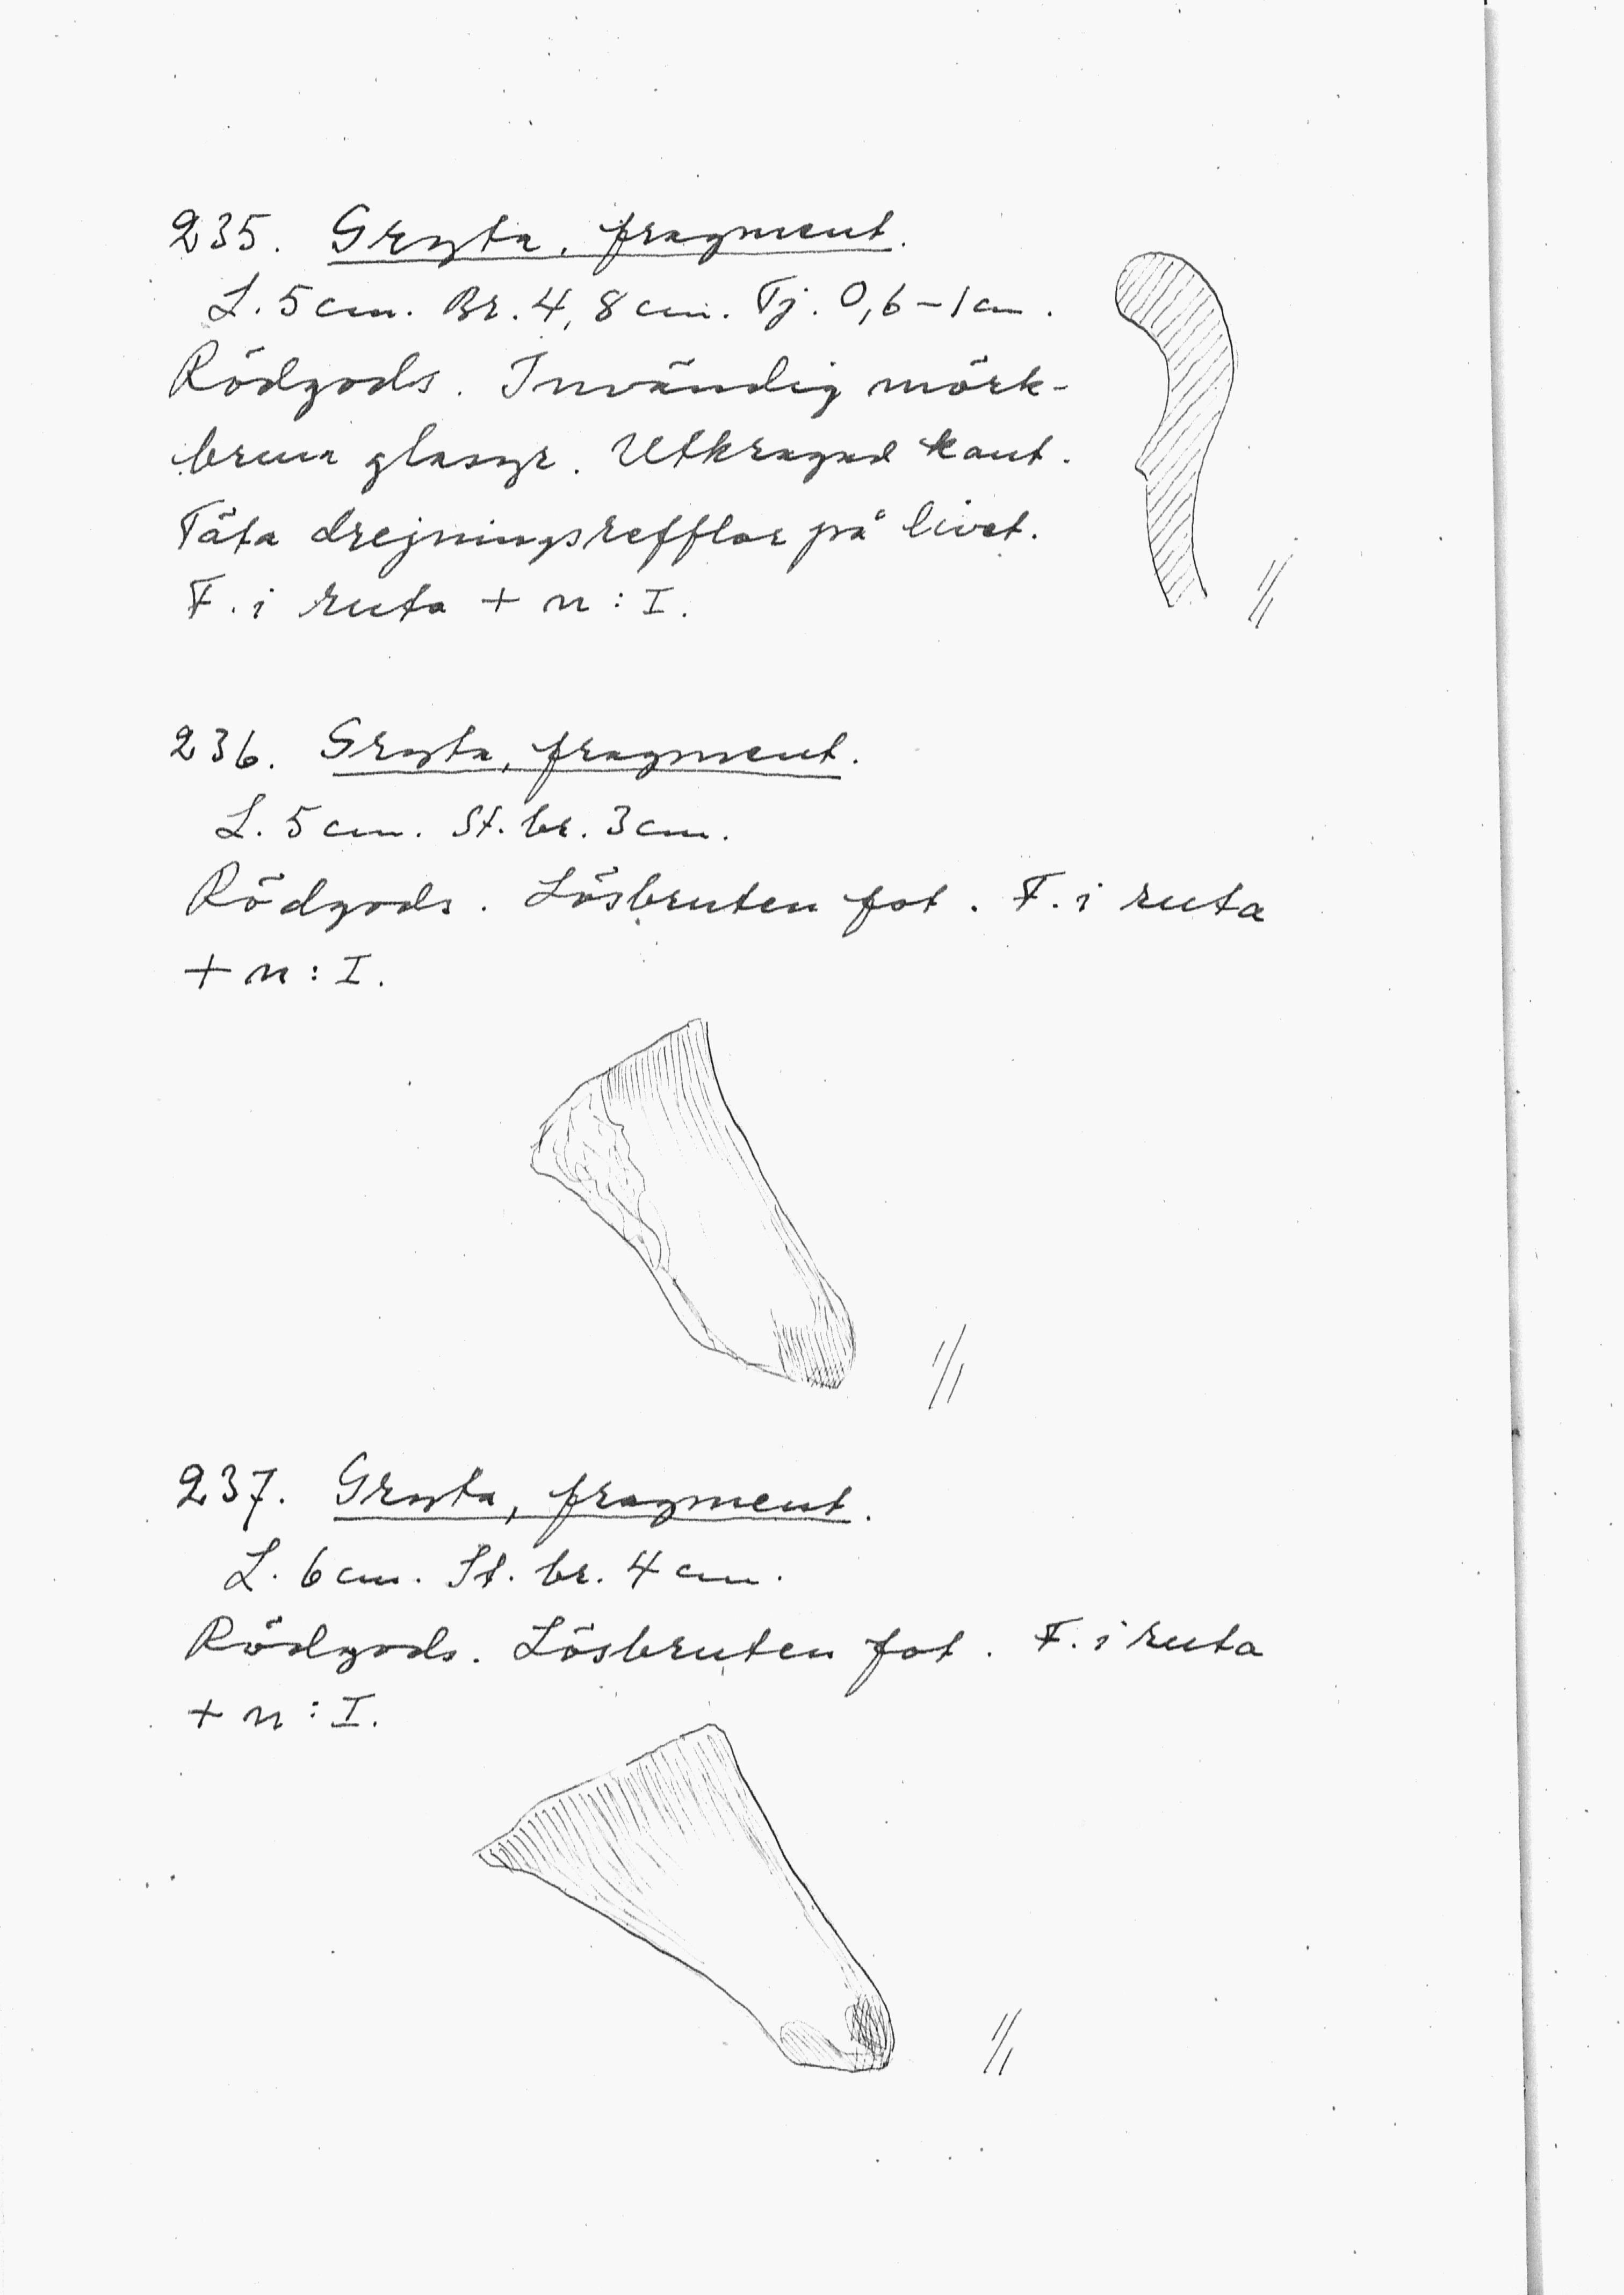 235. Gryta, fragment.
L. 5 cm. Br. 4,8 cm. Tj. 0,6-1 cm.
Rödgods. Invändig mörk-
brun glasyr. Utkragad kant.
Täta drejningsrefflor på livet.
F. i ruta + n : I.
1/1
236. Gryta, fragment.
L. 5 cm. St. br. 3 cm.
Rödgods. Lösbruten fot. F. i ruta
+ n : I.
1/1
237. Gryta, fragment.
L. 6 cm. St. br. 4 cm.
Rödgods. Lösbruten fot. F. i ruta
+ n : I.
1/1